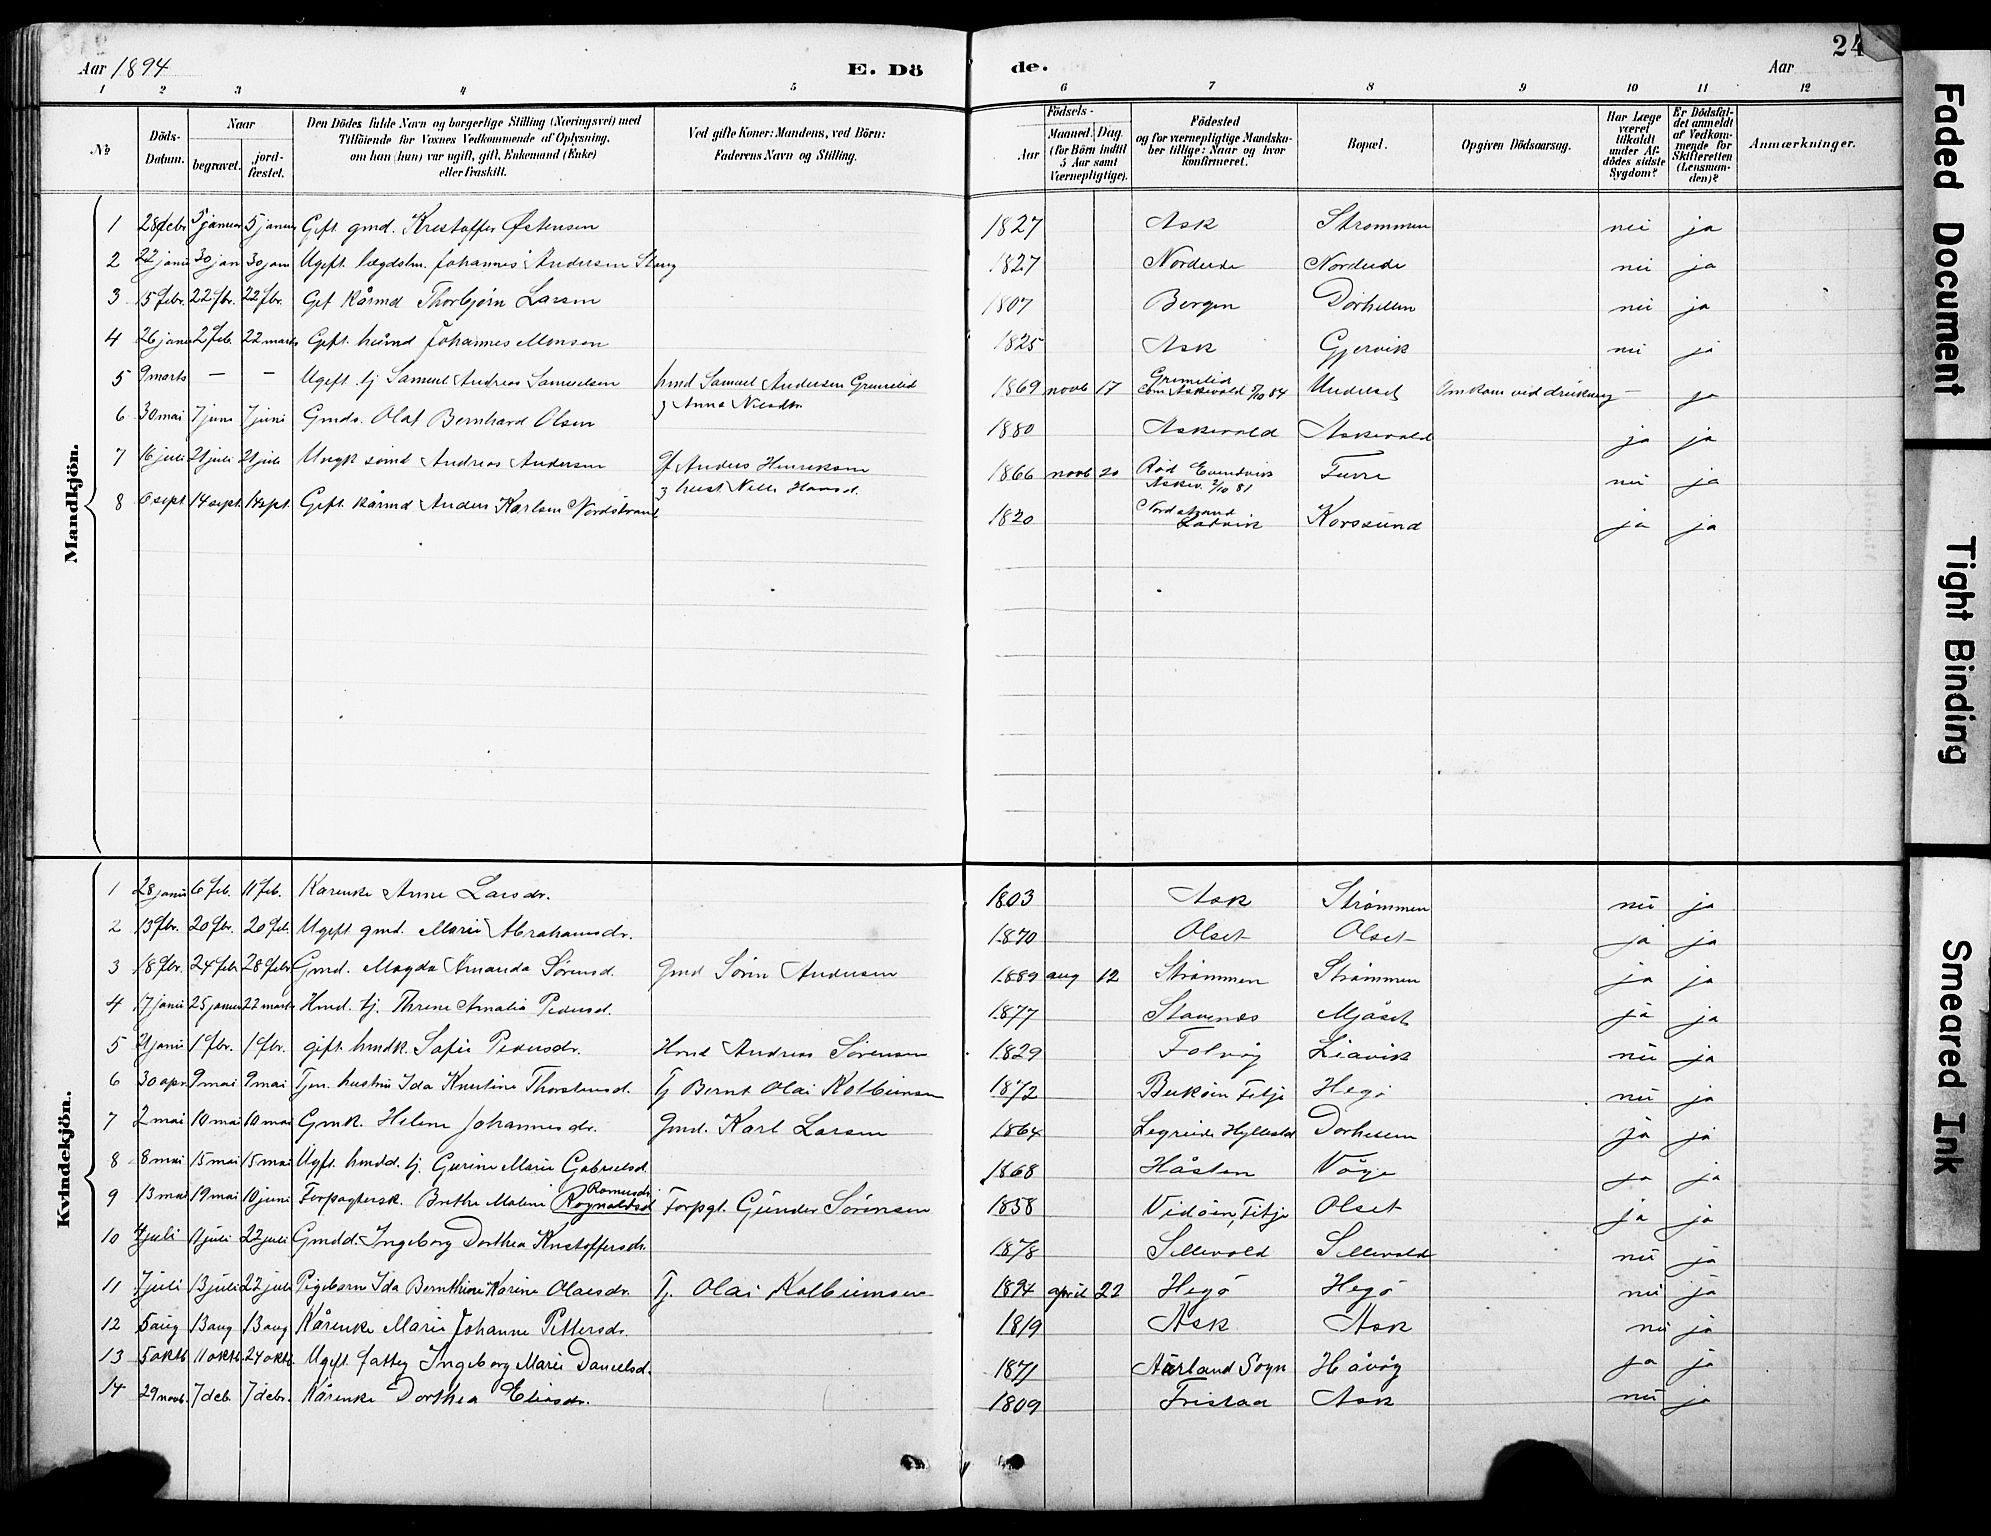 Aar 1894 E. Dö de. Aar 24
1 2 3 4 5 6 7 8 9 10 11 12
No
Döds-Datum.
Naar
begravet.
jord-fæstet.
Den Dödes fulde Navn og borgerlige Stilling (Næringsvei) med
Tilföiende for Voxnes Vedkommende af Oplysning,
om han (hun) var ugift, gift, Enkemand (Enke)
eller fraskilt.
Ved gifte Koner: Mandens, ved Börn:
Faderens Navn og Stilling.
Födsels-
Aar
Maaned. Dag.
(for Börn indtil
5 Aar samt
Værnepligtige).
Födested
og for værnepligtige Mandska-
ber tillige: Naar og hvor
konfirmeret.
Bopæl.
Opgiven Dödsaarsag.
Har Læge
været
tilkaldt
under Af-
dödes sidste
Sygdom?
Er Dödsfal-
det anmeldt
af Vedkom-
mende for
Skifteretten
(Lensman-
den)?
Anmærkninger.
Mandkjön.
1 28 febr 5 januar 5 januar Gift gmd. Kristoffer Østensen 1827 Ask Strømmen nei ja
2 22 janu 30 jan 30 jan Ugift lægdslm. Johannes Andersen 1827 Nordeide Nordeide nei ja
3 15 febr. 22 fbr. 22 fbr. Gift kårmd Thorbjørn Larsen 1807 Bergen Dørhellen nei ja
4 26 janu 2 feb. 22 marts Gift. husmd Johannes Monsen 1825 Ask Gjervik nei ja
5 9 marts — — Ugift. tj Samuel Andreas Samuelsen hmd Samuel Andersen Grimelid 1869 novb 17 Grimelid Underset Omkom ved drukning — ja
g Anna Nilsdtr conf Askevold 5/10 84
6 30 mai 7 juni 7 juni Gmds. Olaf Bernhard Olsen 1880 Askevold Askevold ja ja
7 16 juli 21 juli 21 juli Ungk sömd Andreas Andersen gf Anders Henriksen 1866 novb 20 Rød Evindvik Furre nei ja
Askev. 2/10 81
8 6 sept 14 sept. 14 sept. Gift. kårmd Anders Karlsen Nordstrand 1820 Nordstrand Korssund ja ja
Kvindekjön.
1 28 janu 6 feb. 11 feb. Kårenke Anne Larsdr. 1803 Ask Strømmen nei ja
2 13 fbr. 20 fbr. 20 feb. Ugift gmd. Marie Abrahamsdr. 1870 Olset Olset ja ja
3 18 fbr. 24 febr 28 febr Gmd. Magda Amanda Sørensd. Gmd Sørin Andersen 1889 aug 12 Strømmen Strømmen ja ja
4 17 janu 25 januar 22 marts Hmd. tj. Thrine Amalia Pedersd. 1877 Stavenes Mjåset ja ja
5 21 janu 1 fbr. 1 fbr. gift. hmdk. Sofie Pedersdr. Hmd Andreas Sørensen 1829 Folvåg Liavik nei ja
6 30 apr 9 mai 9 mai Tjen. hustru Ida Kristine Thorstensd. Tj Bernt Olai Kolbeinsen 1872 Buköin Fitje Hegø nei ja
7 2 mai 10 mai 10 mai Gmk. Helene Johannesdr. Gmd. Karl Larsen 1864 Legreide Hyllestd Dørhellen ja ja
8 8 mai 15 mai 15 mai Ugft. hmdd. tj. Gurine Marie Gabrielsd. 1868 Håsten Våge ja ja
Romusdr
9 13 mai 19 mai 10 juni Forpagtersk. Brethe Malene Rognaldsd Forpgt. Gunder Sørensen 1858 Vidöin, Fitje Olset ja ja
10 4 juli 11 juli 22 juli Gmdd. Ingeborg Dorthea Kristoffersdr. 1878 Sellevold Sellevold nei ja
11 7 juli 13 juli 22 juli Pigebarn Ida Bernthine Karine Olaisdr. Tj. Olai Kolbeinsen 1894 april 22 Hegø Hegø nei ja
12 5 aug 13 aug 13 aug Kårenke Marie Johanne Pettersdr. 1819 Ask Ask nei ja
13 5 oktb 11 oktb. 24 oktb. Ugift fattig Ingeborg Marie Danielsd. 1871 Aurland Sogn Håvåg ja ja
14 29 novb. 7 deb. 7 debr. Kårenke Dorthea Eliasdr. 1809 Fristad Ask nei ja
Faded Document
Tight Binding
Smeared Ink